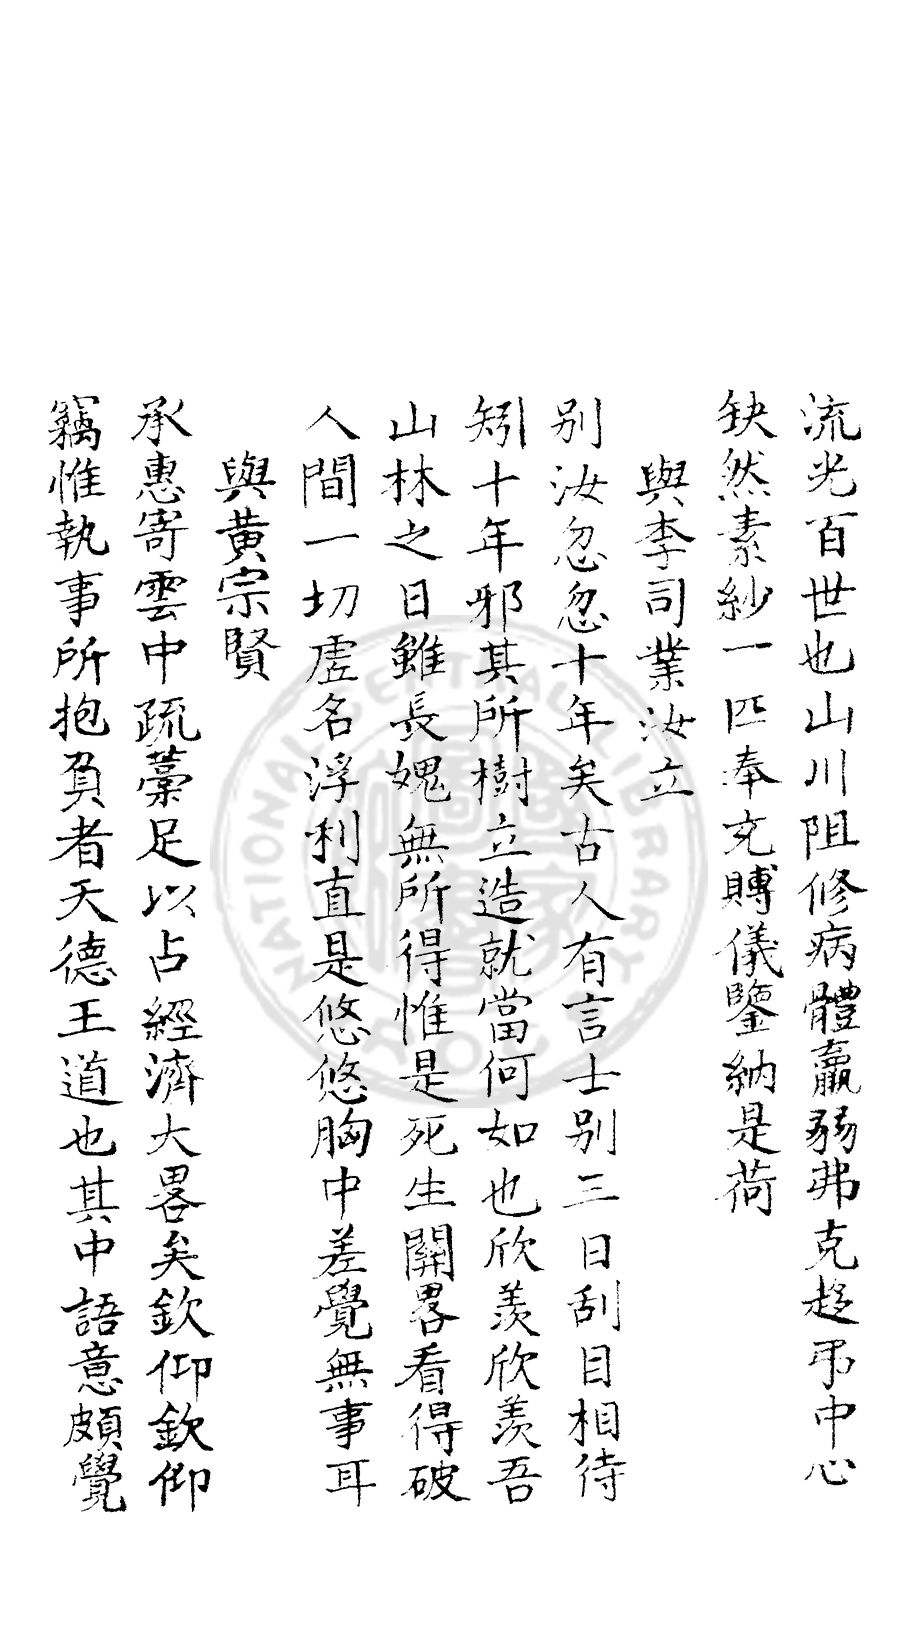 流光百世也山川阻修病體羸弱弗克趍弔中心
缺然素紗一匹奉充賻儀鑒納是荷
與李司業汝立
別汝忽忽十年矣古人有言士別三日刮目相待
矧十年邪其所樹立造就當何如也欣羨欣羨吾
山林之日雖長媿無所得惟是死生關畧看得破
人間一切虗名浮利直是悠悠胸中差覺無事耳
與黃宗賢
承惠寄雲中疏藁足以占經濟大畧矣欽仰欽仰
竊惟執事所抱負者天德王道也其中語意頗覺
NATIONAL CENTRAL LIBRARY